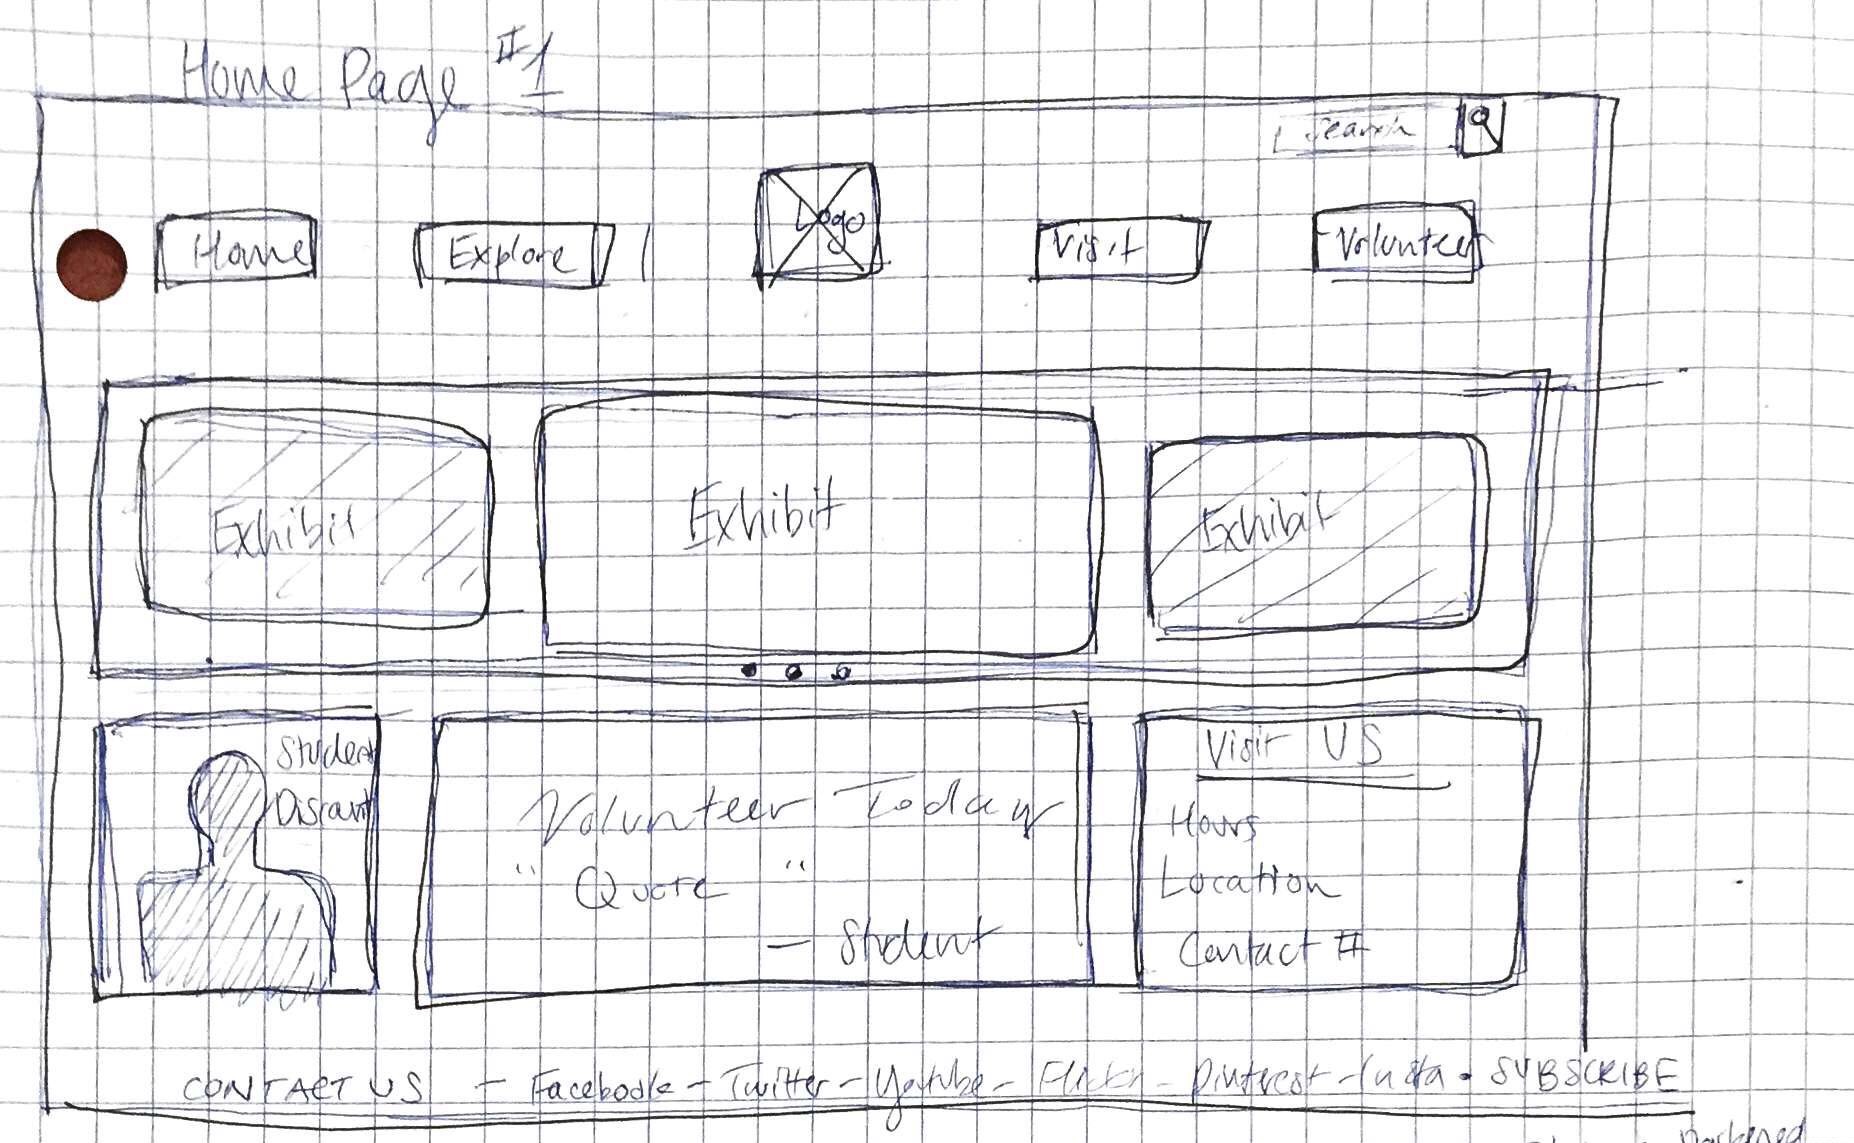 Home Page #1
Search
Home Explore Logo Visit Volunteer
Exhibit Exhibit Exhibit
Student
Volunteer Today
" Quote "
— Student
Visit US
Hours
Location
Contact #
CONTACT US - Facebook - Twitter - Youtube - Flickr - Pinterest - Insta • SUBSCRIBE
Darkened